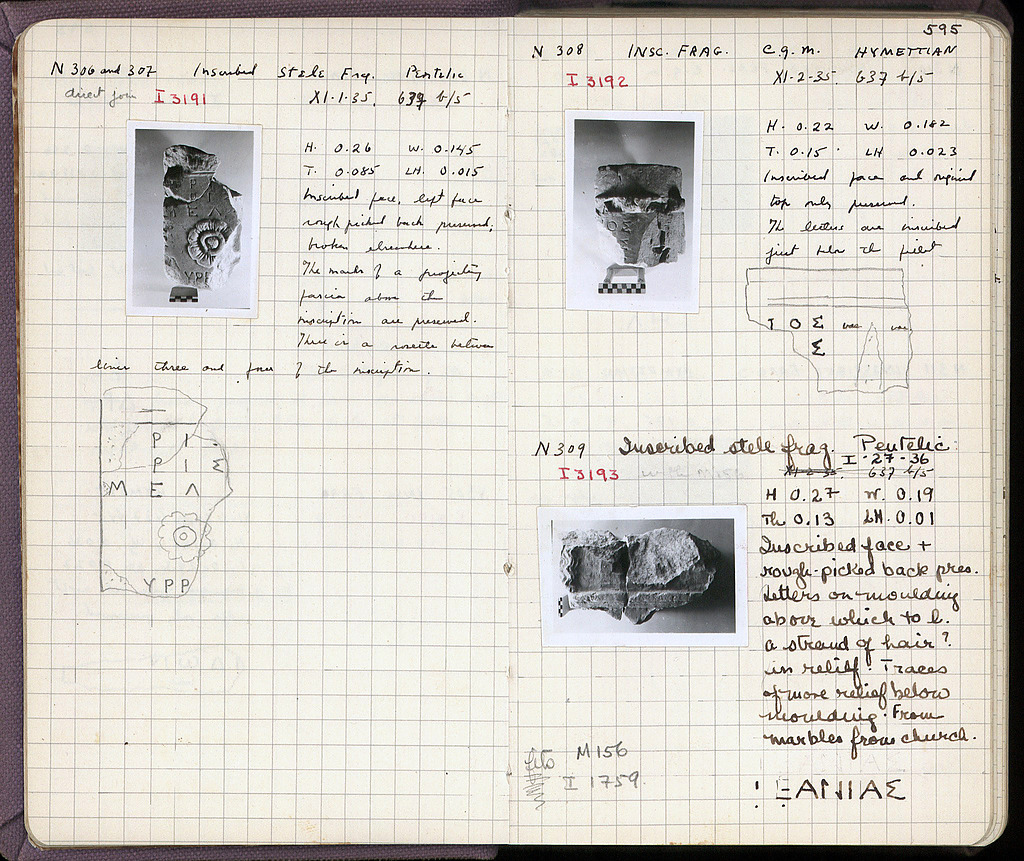 N 306 and 307 Inscribed Stele Frg. Pentelic
direct join I 3191 XI-1-35. 637 b/5
H. 0.26 W. 0.145
T. 0.085 LH. 0.015
Inscribed face, left face
rough picked back preserved;
broken elsewhere.
The marks of a projecting
fascia above the
inscription are preserved.
There is a rosette between
lines three and four of the inscription.
Ρ Ι
Ρ Ι Σ
Μ Ε Λ
Υ Ρ Ρ
595
N 308 INSC. FRAG. C.g.m. HYMETTIAN
I 3192 XI-2-35 637 b/5
H. 0.22 W. 0.182
T. 0.15 LH 0.023
Inscribed face and original
top only preserved.
The letters are inscribed
just below the
Τ Ο Σ vac vac
Σ
N 309 Inscribed stele frag. Pentelic
I-27-36
I 3193 XI-2-35. 637 b/5
H 0.27 W. 0.19
Th 0.13 LH. 0.01
Inscribed face +
rough-picked back pres.
Letters on moulding
above which to l.
a strand of hair?
in relief. Traces
of more relief below
moulding. From
marbles from church.
M 156
I 1759
ΞΑΝΙΑΣ